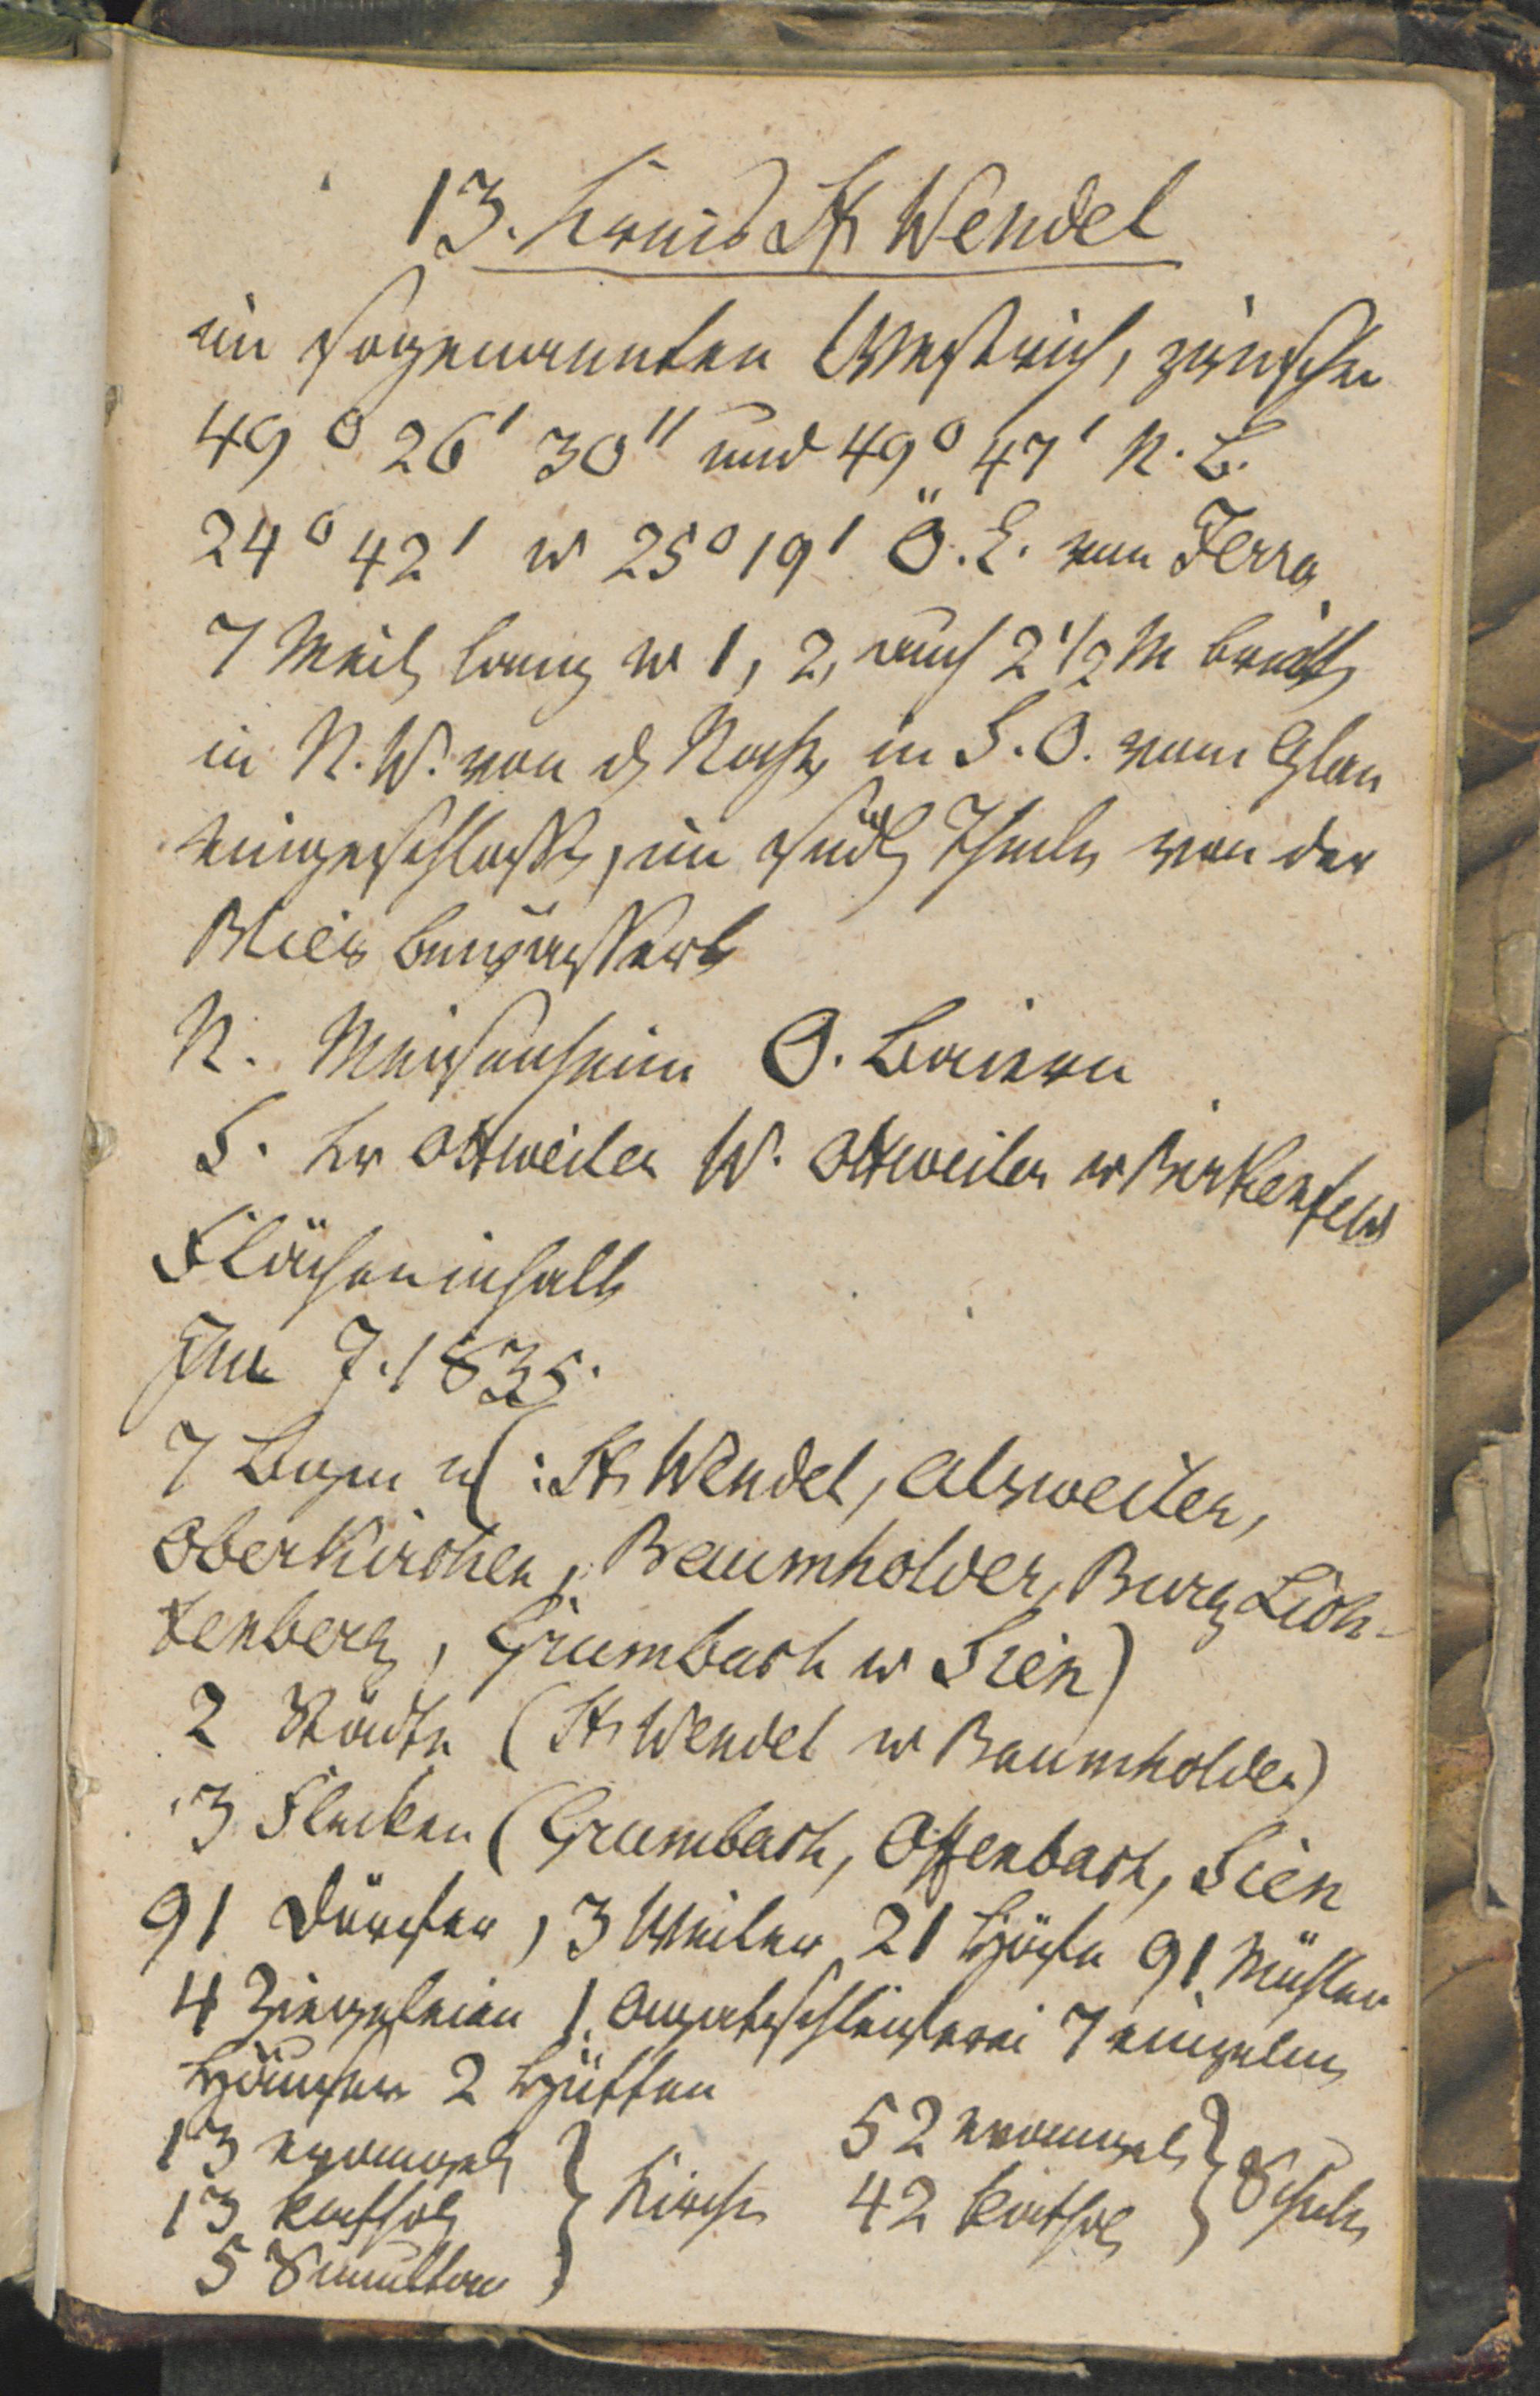 13. Kreis St Wendel
im sogenannten Westrich, zwischen
49° 26' 30" und 49° 47' N. B.
24° 42' u 25° 19' Ö. L. von Ferro
7 Meil lang u 1, 2, auch 2 1/2 M breit
in N. W. von d Nahe in S. O. vom Glan
eingeschloss, im südl Theile von der
Blies bewässert
N. Meisenheim O. Baiern
S. Kr Ottweiler W. Ottweiler u Birkenfeld
Flächeninhalt
Im J. 1835.
7 Bürgm : St Wendel, Alsweiler,
Oberkirchen, Baumholder, Burg Lich-
tenberg, Grumbach u Sien)
2 Städte (St Wendel u Baumholder)
3 Flecken (Grumbach, Offenbach, Sien
91 Dörfer, 3 Weiler 21 Höfe 91 Mühlen
4 Ziegeleien 1 Agatschleiferei 7 einzelne
Häuser 2 Hütten
13 evangel } Kirche 52 evangel } Schule
13 kathol 42 kathol
5 Simultan